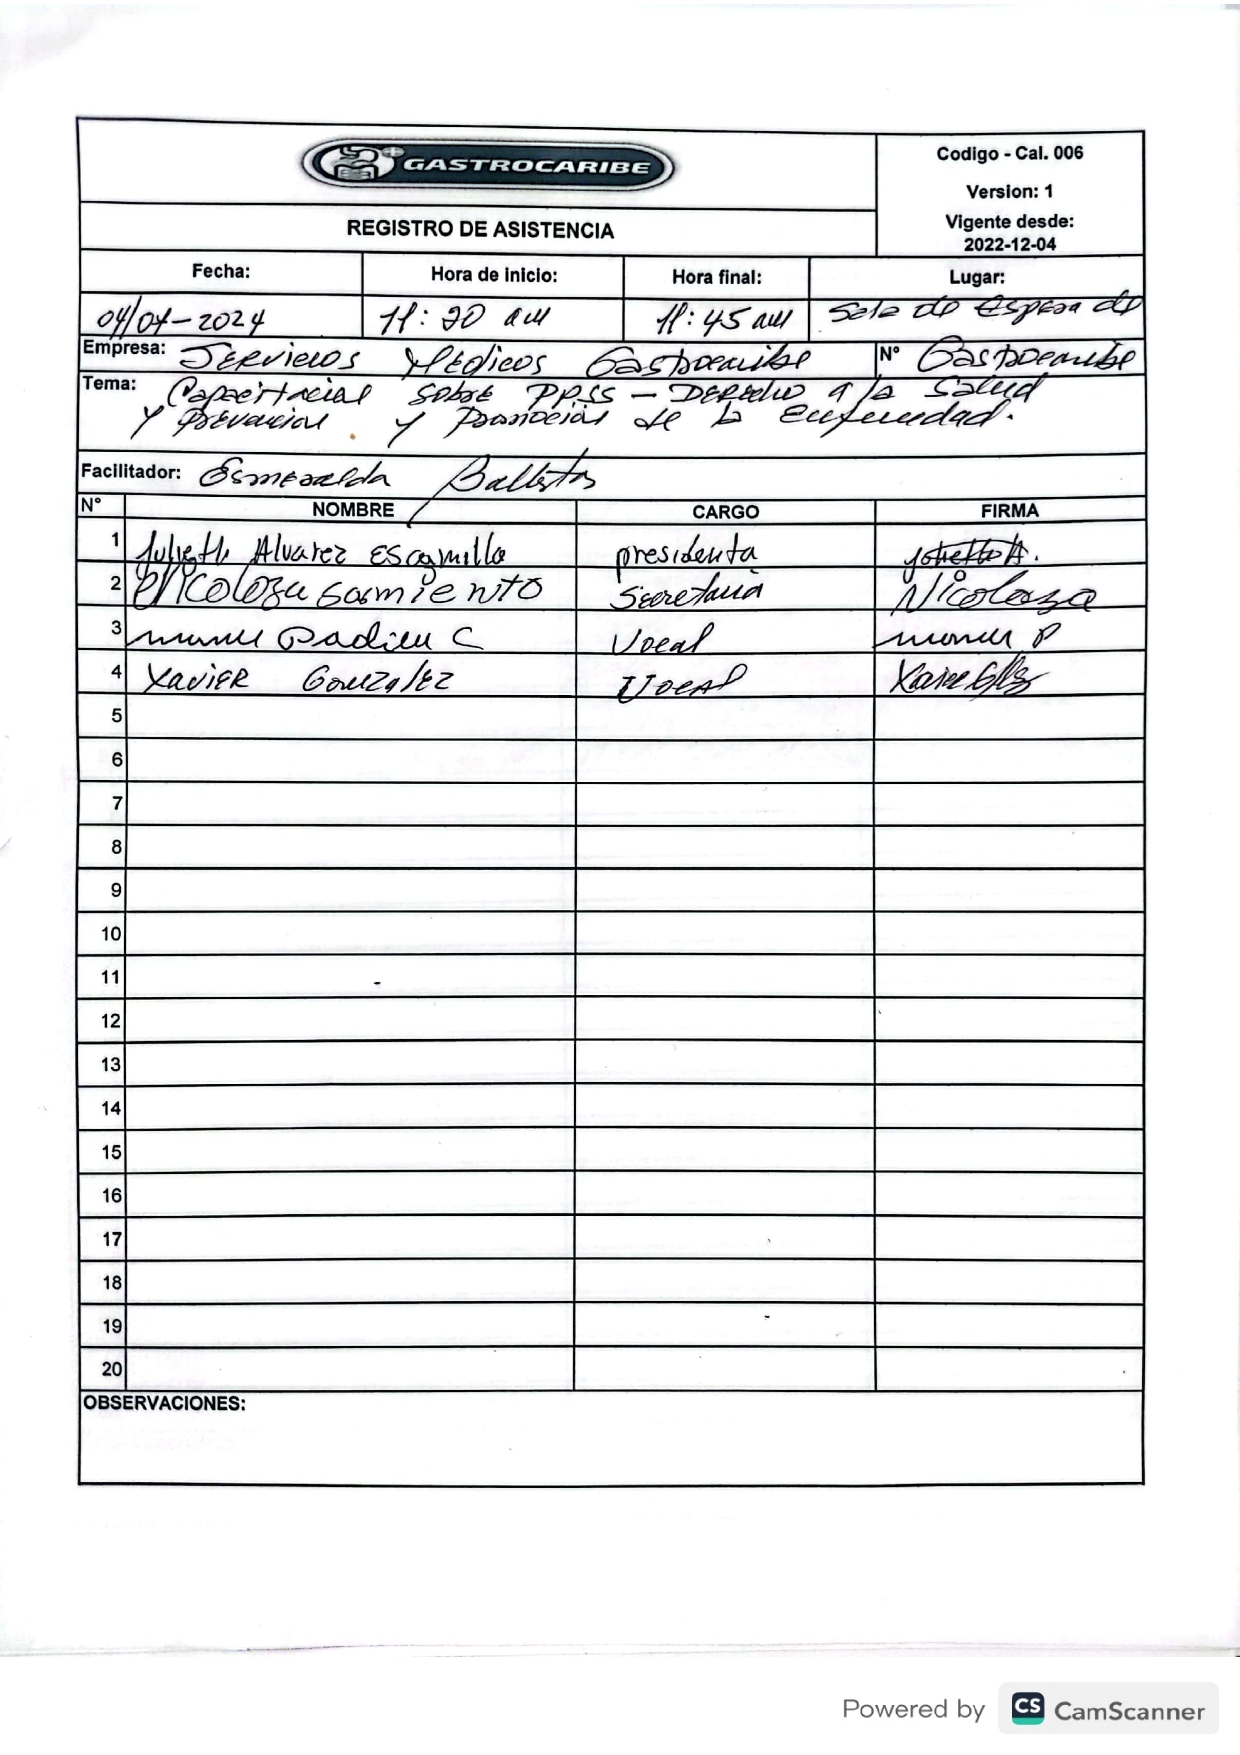 GASTROCARIBE
Codigo - Cal. 006
Version: 1
Vigente desde:
2022-12-04
REGISTRO DE ASISTENCIA
Fecha: Hora de inicio: Hora final: Lugar:
04/04-2024 11:20 am 11:45 am Sala de Espera de
Empresa: Servicios Médicos Gastrocaribe N° Gastrocaribe
Tema: Capacitacial sobre PPSS - Derecho a la Salud
y prevencion y promocion de la Enfermedad.
Facilitador: Esmeralda
N° NOMBRE CARGO FIRMA
1 Julieth Alvarez Escamilla presidenta
2 Nicolaza Sarmiento Secretaria Nicolaza
3 Padilla C Vocal
4 Xavier Gonzalez Vocal
5
6
7
8
9
10
11
12
13
14
15
16
17
18
19
20
OBSERVACIONES:
Powered by CS CamScanner